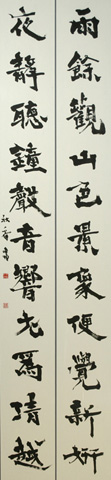 雨餘觀山色景象便覺新妍
夜靜聽鐘聲音響尤爲清越